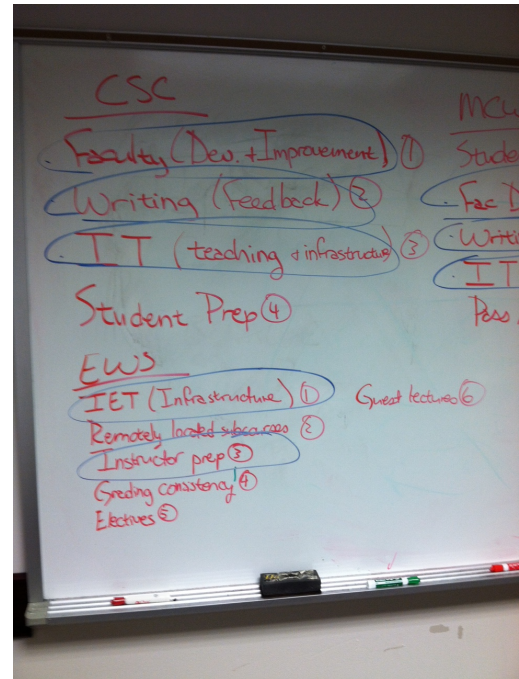 CSC
· Faculty (Dev. + Improvement) ①
· Writing (Feedback) ②
· IT (teaching + infrastructure) ③
Student Prep ④
EWS
IET (Infrastructure) ①
Remotely located subcourses ②
Instructor prep ③
Grading consistency ④
Electives ⑤
Guest lectures ⑥
MCW
Studen
· Fac D
· Writi
· IT